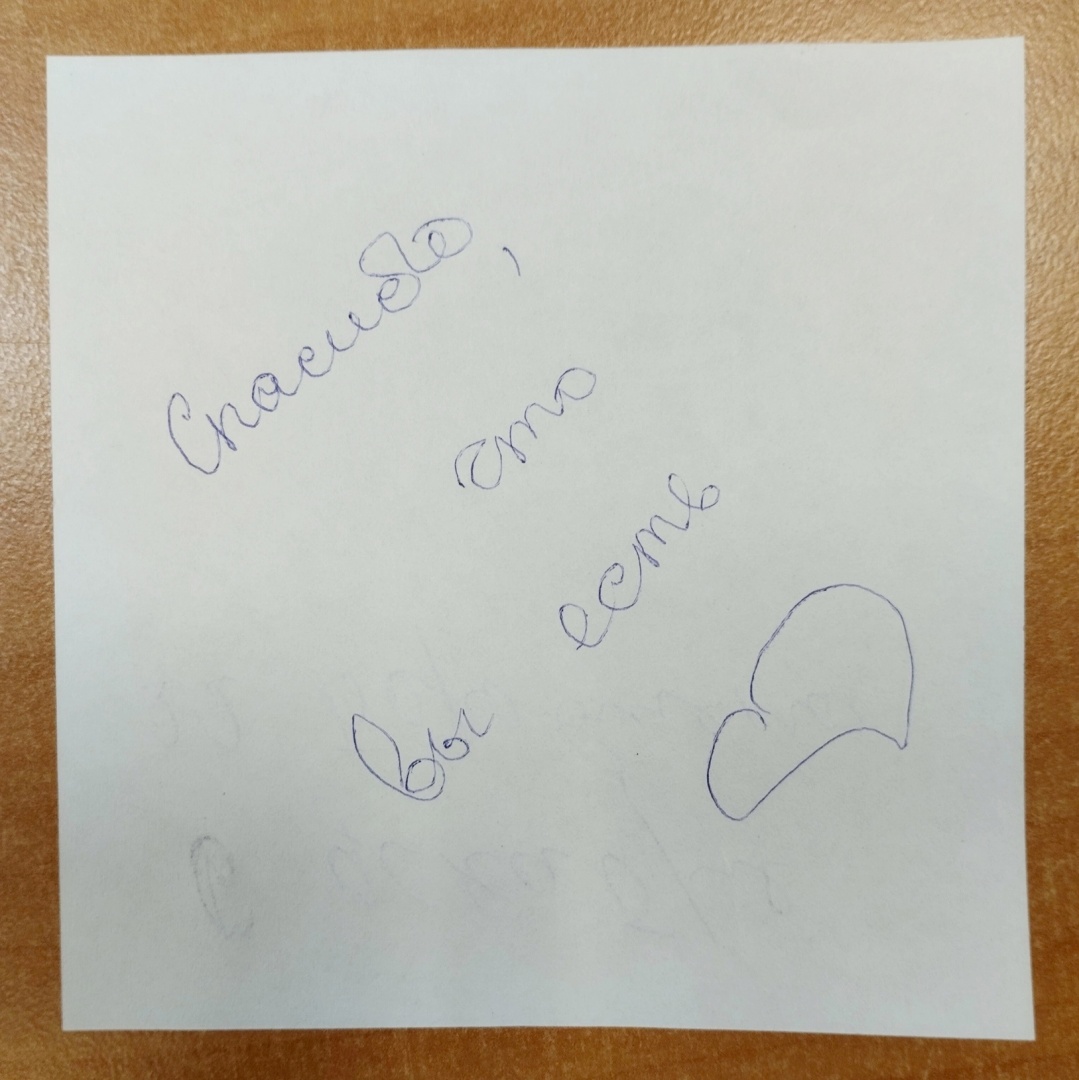 Спасибо,
что
вы есть